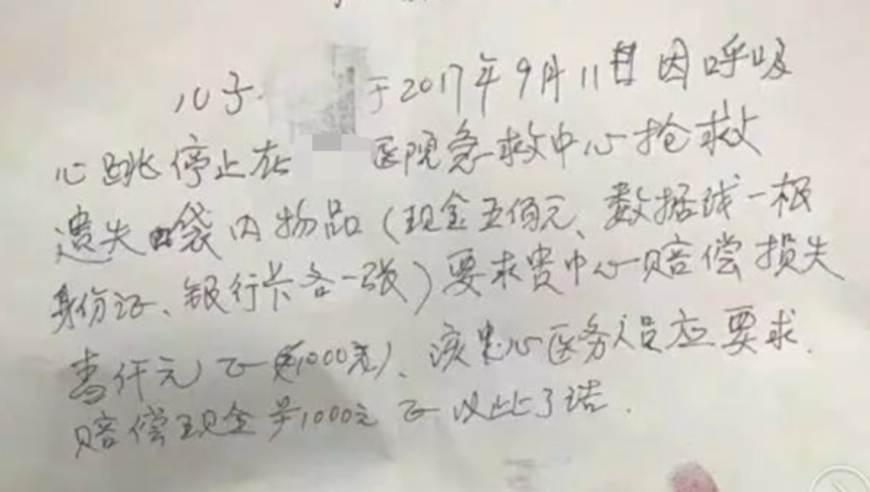 儿子 于2017年9月11日因呼吸
心跳停止在 医院急救中心抢救
遗失口袋内物品(现金五佰元、数据线一根
身份证、银行卡各一张)要求贵中心赔偿损失
壹仟元正(¥1000元)、该中心医务人员应要求.
赔偿现金¥1000元正以此了结.